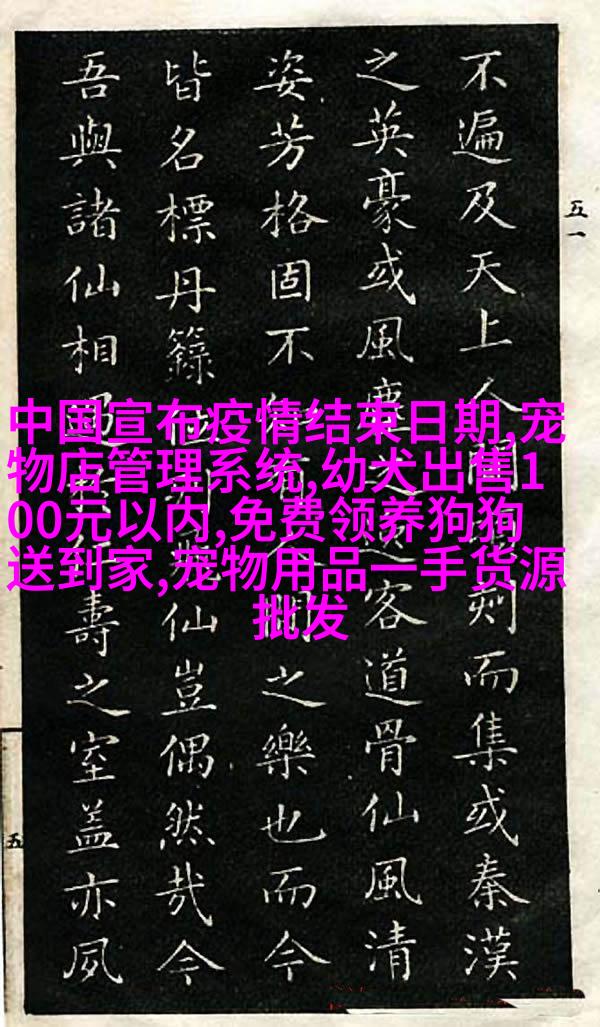 中国宣布疫情结束日期,宠
物店管理系统,幼犬出售1
00元以内,免费领养狗狗
送到家,宠物用品一手货源
批发
五一
不遍及天上人間刻而集或秦漢
之英豪或風塵客道骨仙風清
姿芳格固不間之樂也而今
皆名標丹籙仙豈偶然哉今
吾與諸仙相遇壽之室蓋亦夙
五